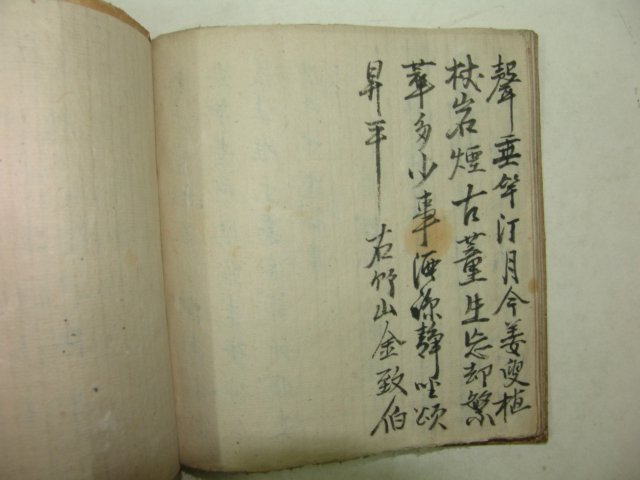 聲垂竿汀月今姜叟植
杖岩煙古董生忘却繁
華多少事酒傍靜坐頌
昇平
右竹山金致伯